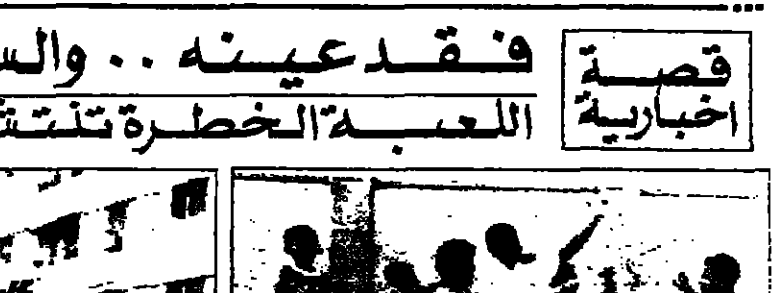 قصة
اخبارية
فقد عينه .. والس
اللعبة الخطرة تنتش